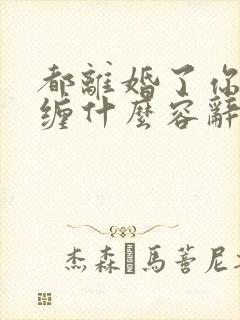 都離婚了你
纏什麼容辭
杰森 馬菩尼